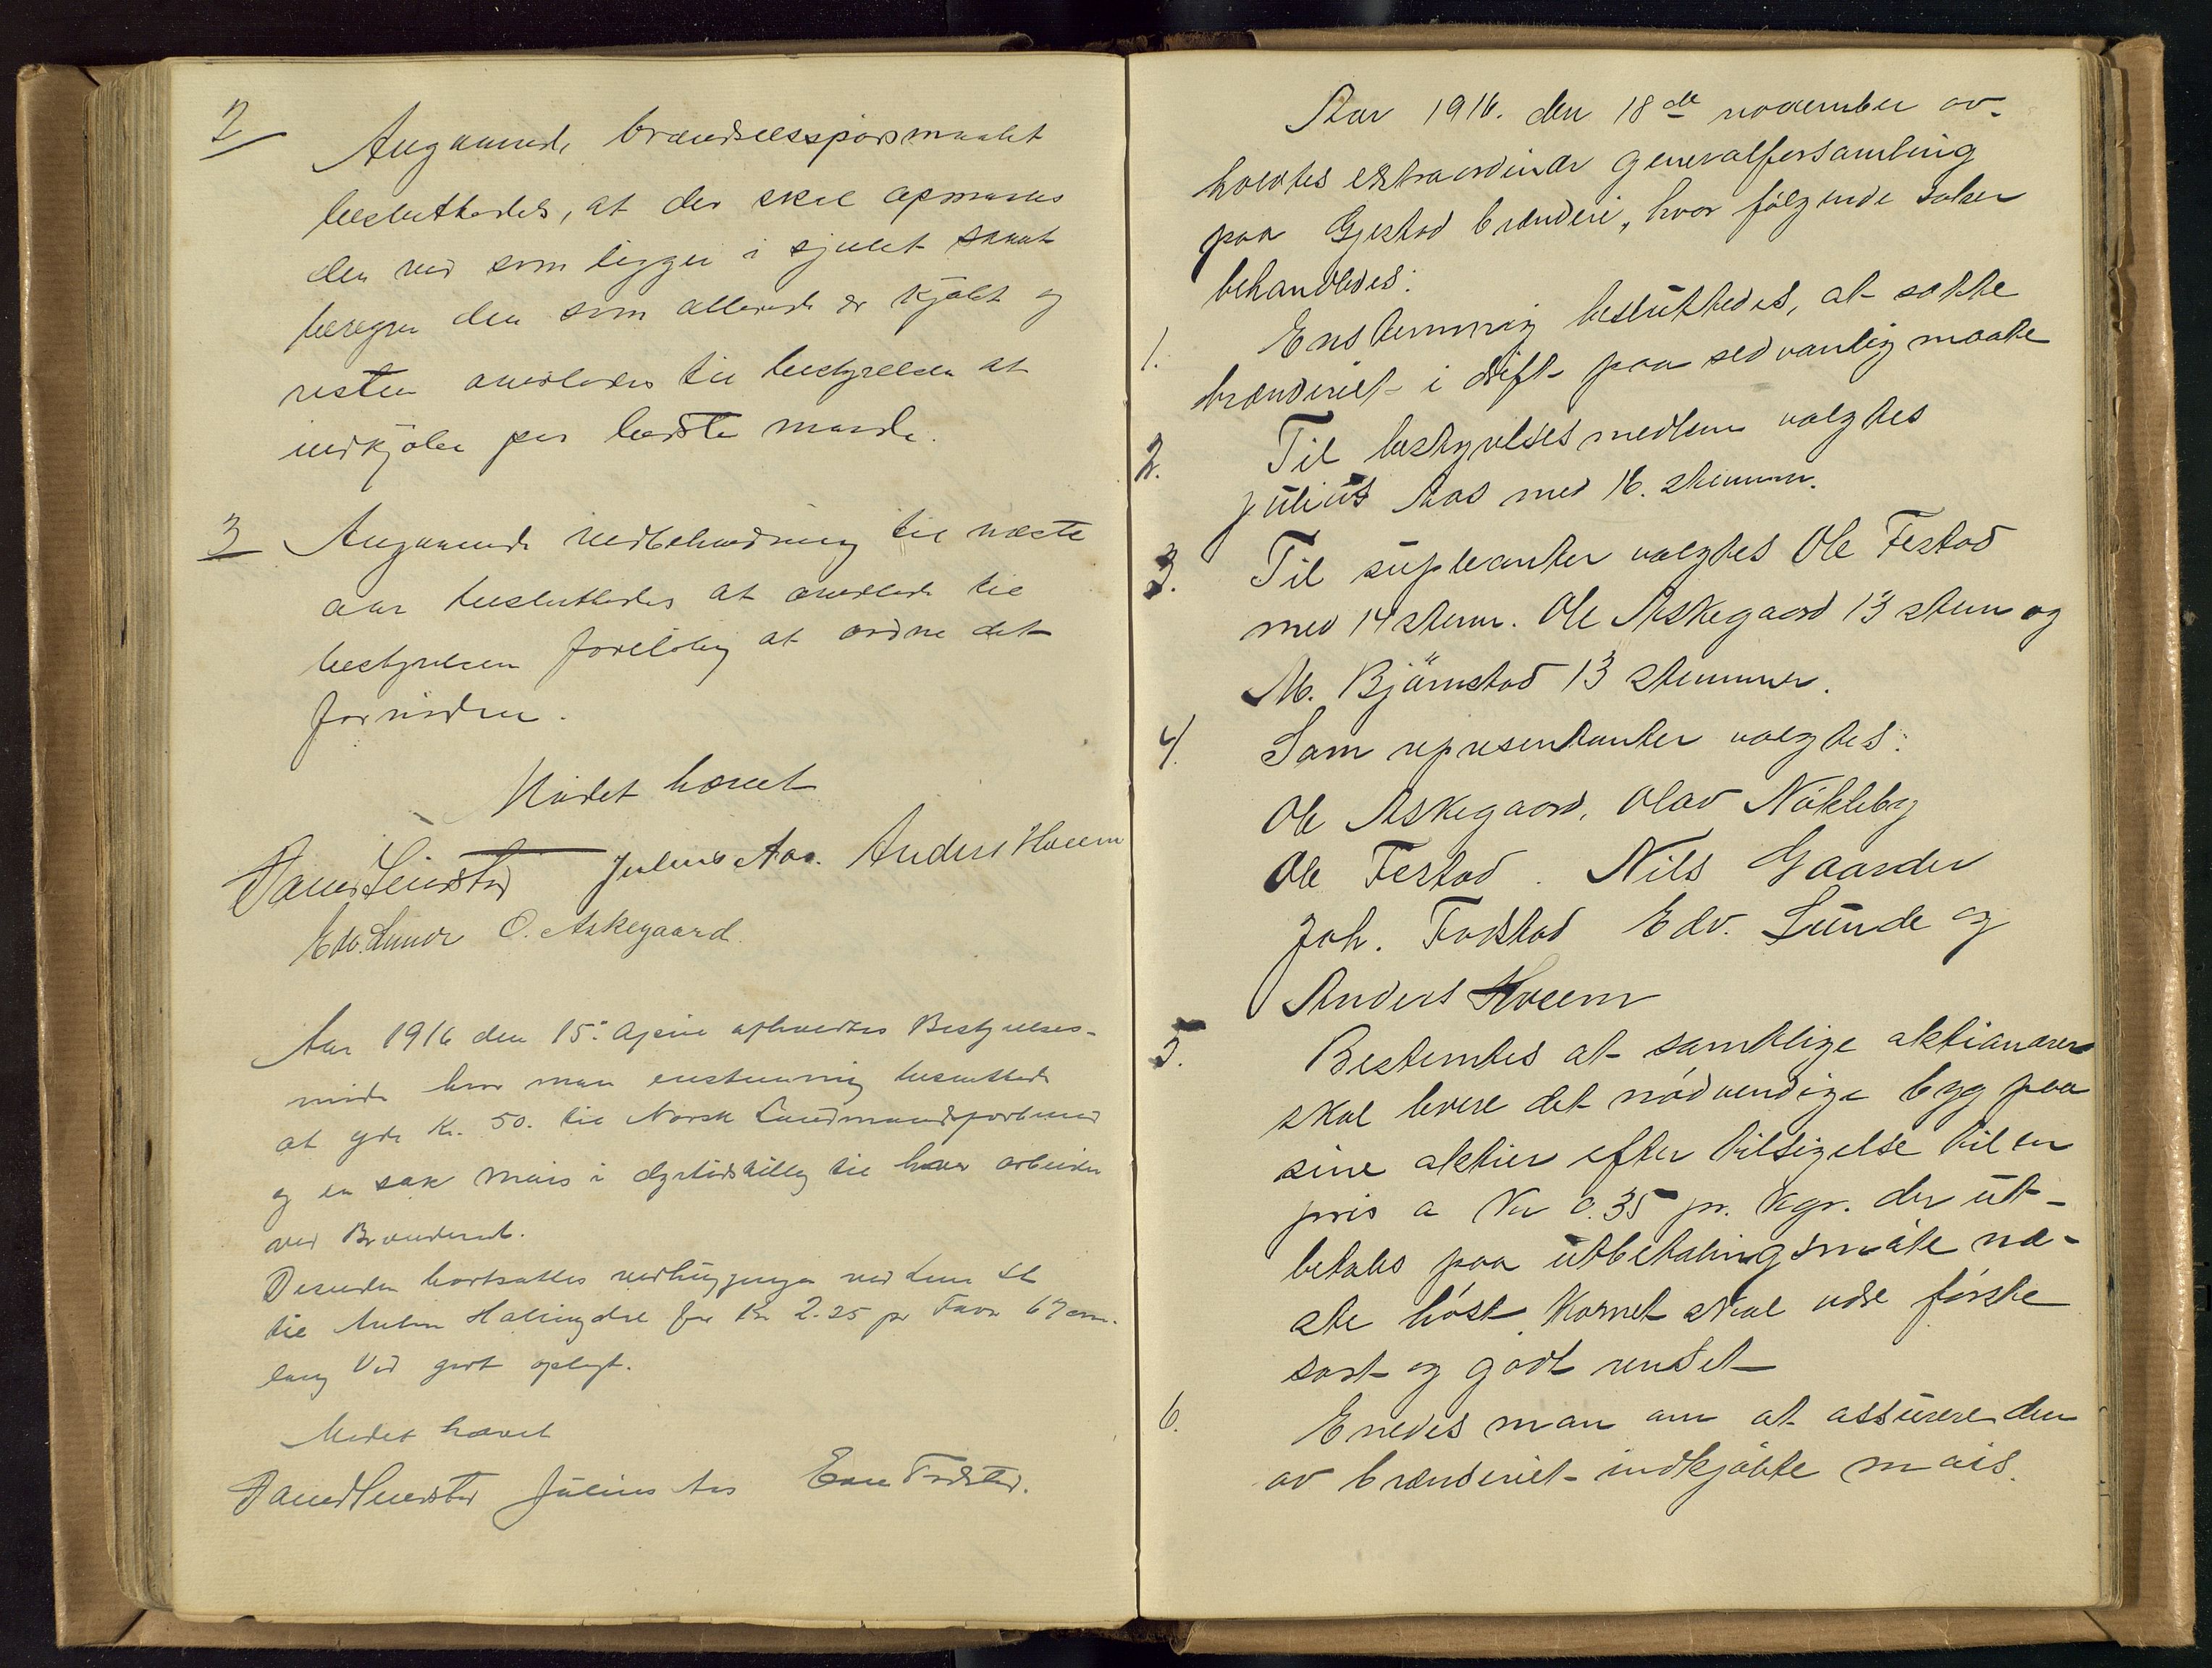 2
Angaaende brændselsspørsmaalet
besluttedes, at der skal opmaales
den ved som ligger i sjulet samt
beregne den som allerede er kjøbt og
resten overlades til bestyrelsen at
indkjøbe paa bedste maade.
3 Angaaende vedbehandling til næste
aar besluttedes at overlade til
bestyrelsen foreløbig at ordne det
fornødne.
Mødet hævet
Julius Aas. Anders Hveem
Edv. Lunde O. Askegaard.
Aar 1916 den 15: April afholdtes Bestyrelses-
møde hvor man enstemmig besluttede
at yde Kr. 50. til Norsk Landmandsforbund
og en sæk mais i dyrtidstillæg til hver arbeider
ved Brænderiet.
Desuden bortsattes vedhugningen ved
til Anton Halingdal for Kr 2.25 pr Favn 67 cm.
lang Ved godt oplagt.
Mødet hævet
Julius Aas Even Fodstad.
Aar 1916. den 18de november av-
holdtes extraordinær generalforsamling
paa Gjestad brænderi, hvor følgende saker
behandledes:
1. Enstemmig besluttedes, at sætte
brænderiet i drift paa sedvanlig maate
2. Til bestyrelsesmedlem valgtes
Julius Aas med 16. stemmer.
3. Til supleanter valgtes Ole Festad
med 14 stem. Ole Askegaard 13 stem og
M. Bjørnstad 13 stemmer.
4/ Som representanter valgtes:
Ole Askegaard, Olav Nökleby
Ole Festad. Nils Gaarder
Joh. Fodstad Edv. Lunde og
Anders Hveem
5. Bestemtes at samtlige aktionærer
skal levere det nödvendige byg paa
sine aktier efter tilsigelse til en
pris a Kr 0.35 pr. kgr. der ut-
betales paa utbetalingsmöte næ-
ste höst. Kornet skal være förste
sort og godt renset
6. Enedes man om at assurere den
av brænderiet indkjöbte mais.